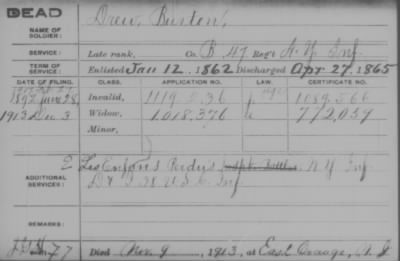 DEAD
NAME OF SOLDIER: Drew, Burton,
SERVICE: Late rank, Co. B 47 Reg't N.Y. Inf.
TERM OF SERVICE: Enlisted Jan 12, 1862 Discharged Apr 27, 1865
DATE OF FILING. CLASS. APPLICATION NO. LAW. CERTIFICATE NO.
1892 June 28, Invalid, 1119 536 1089 566
1913 Dec 3 Widow, 1,018,376 772,059
Minor,
ADDITIONAL SERVICES: E Les Enfans Perdus N.Y. Inf
Inf
REMARKS:
Died Nov. 9, 1913, at East Orange, N.J.